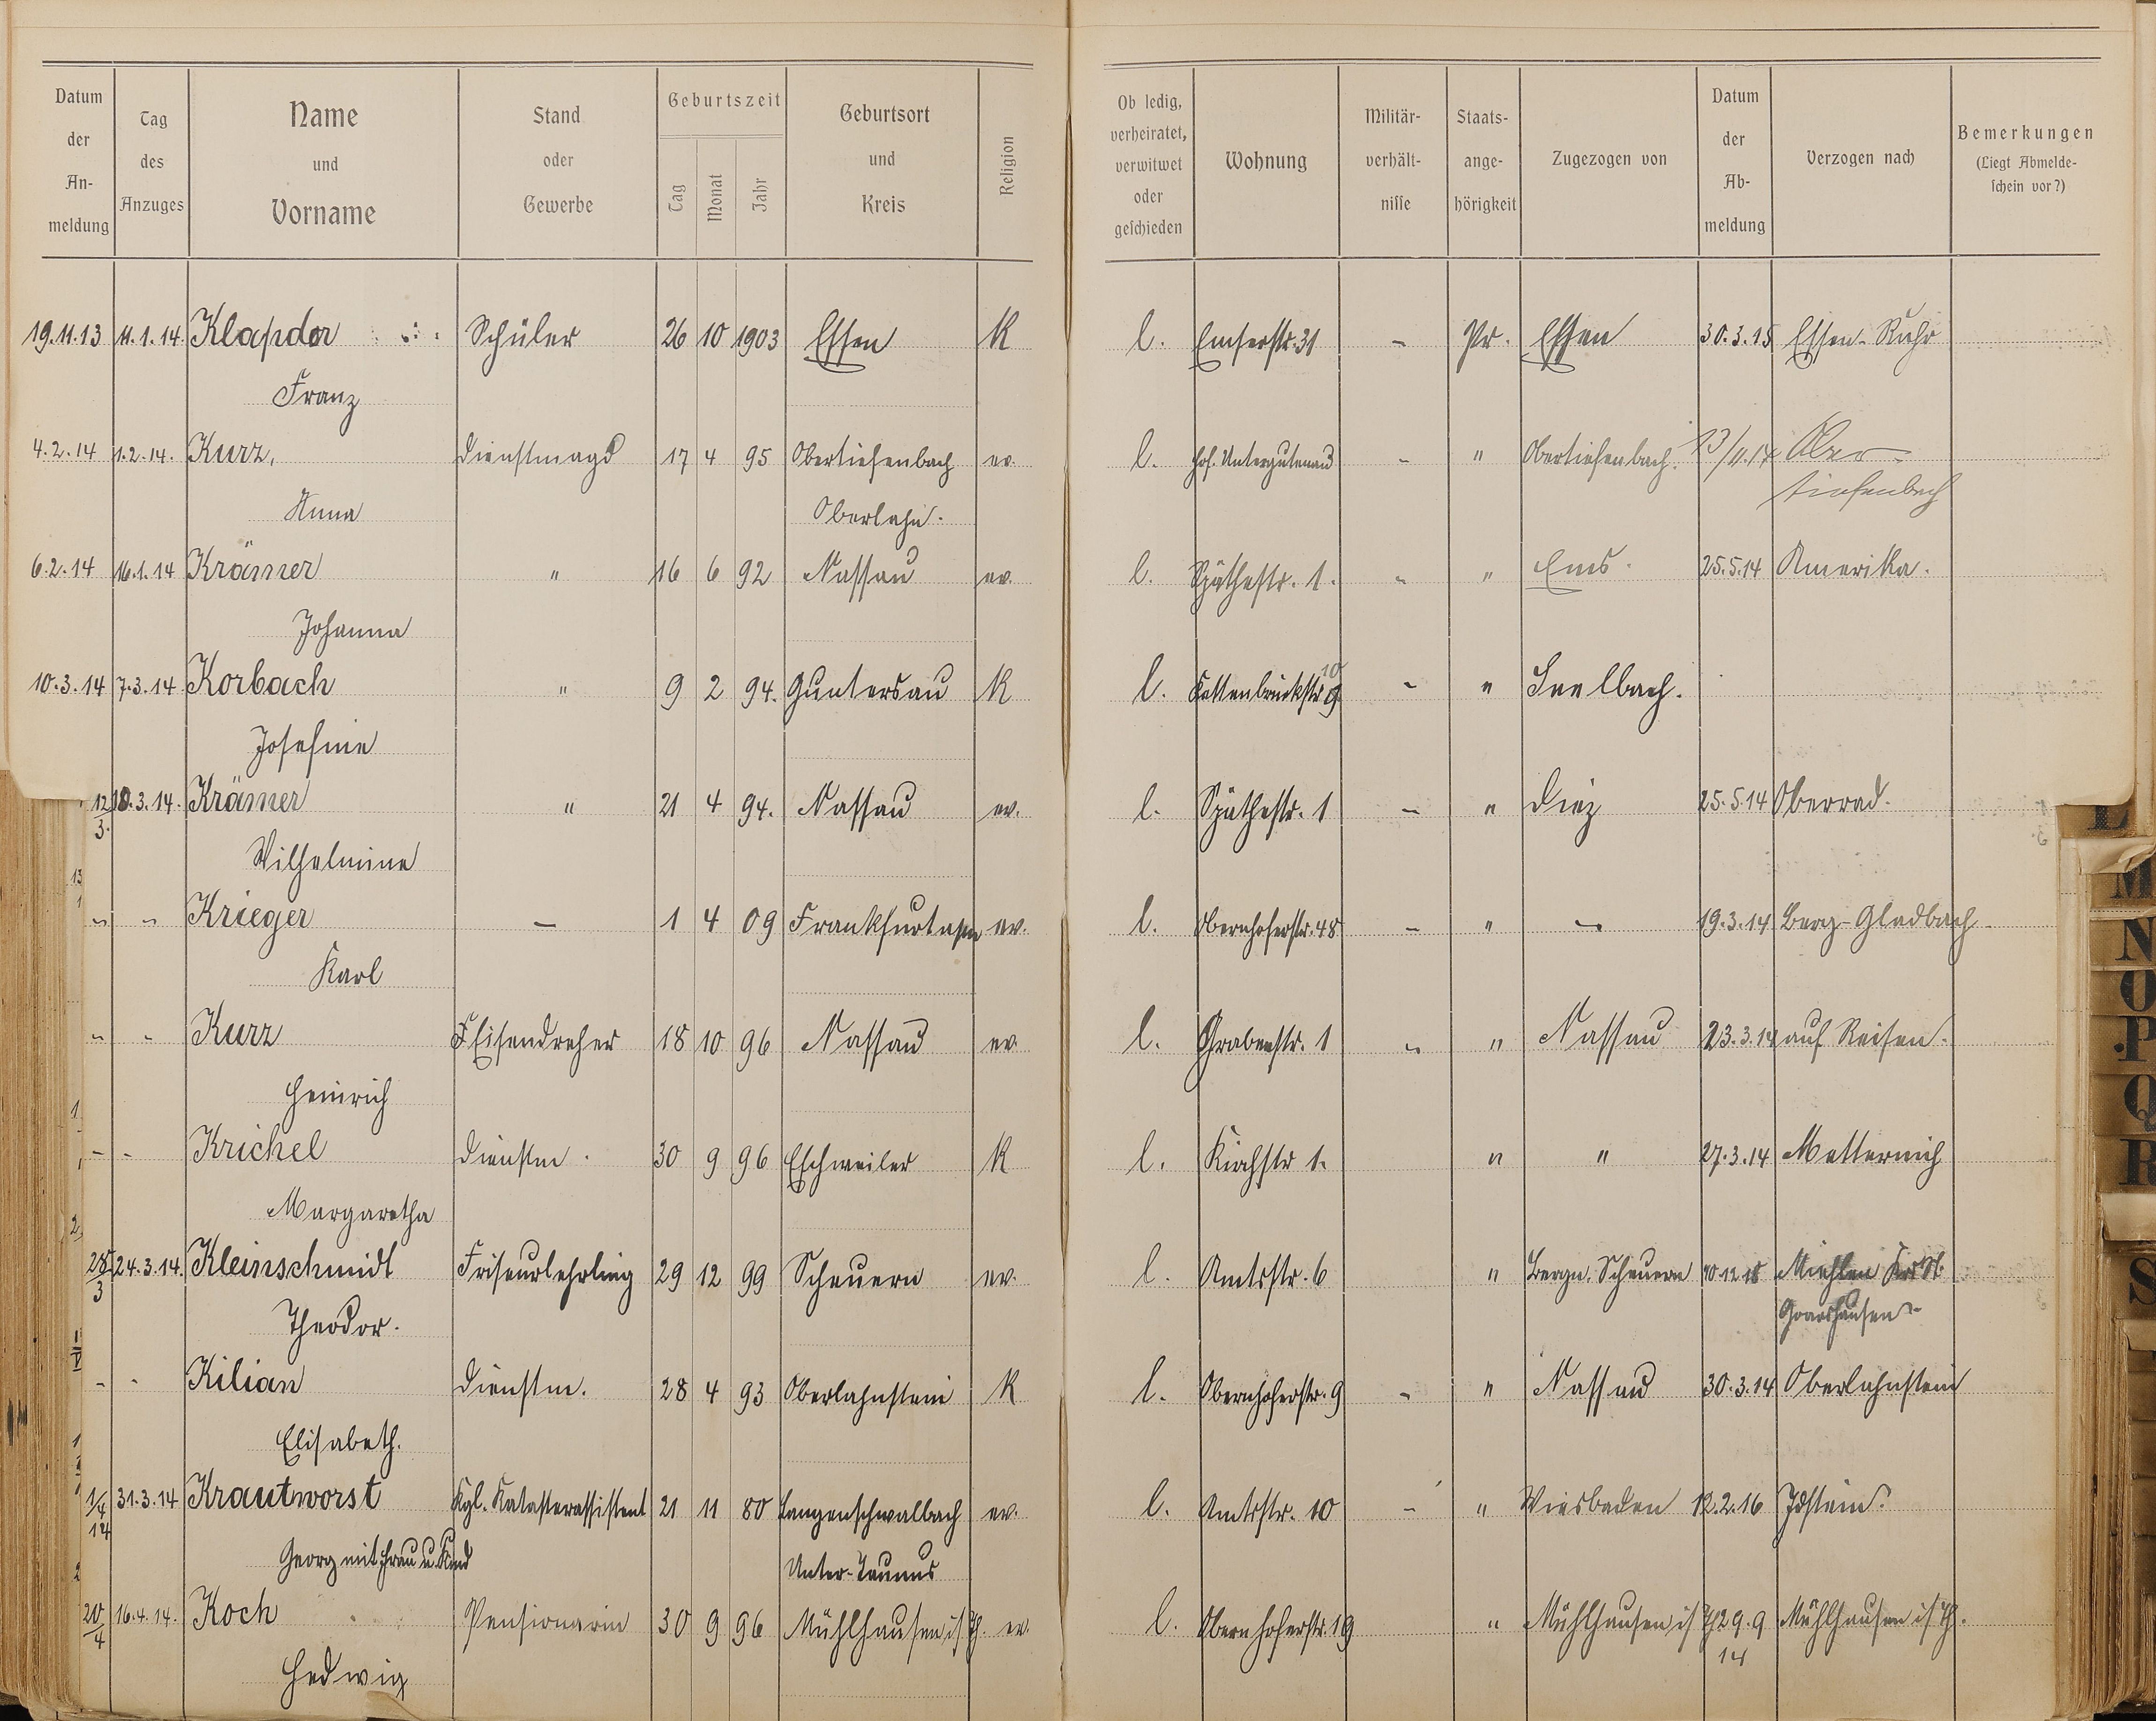 Datum der An-meldung | Tag des Anzuges | Name und Vorname | Stand oder Gewerbe | Geburtszeit Tag Monat Jahr | Geburtsort und Kreis | Religion | Ob ledig, verheiratet, verwitwet oder geschieden | Wohnung | Militär-verhält-nisse | Staats-ange-hörigkeit | Zugezogen von | Datum der Ab-meldung | Verzogen nach | Bemerkungen (Liegt Abmelde-schein vor?)
19.11.13 11.1.14. Klapdor Schüler 26 10 1903 Essen K l. Emserstr. 31 - Pr. Essen 30.3.15 Essen-Ruhr
Franz
4.2.14 1.2.14. Kurz, Dienstmagd 17 4 95 Obertiefenbach ev. l. Hof. Untergutenau - " Obertiefenbach. 13/11.14 Ober-
Anna Oberlahn. tiefenbach
6.2.14 16.1.14 Krämer " 16 6 92 Nassau ev. l. Späthestr. 1. - " Ems. 25.5.14 Amerika.
Johanna
10.3.14 7.3.14 Korbach " 9 2 94. Guntersau K l. Kettenbrückstr. 9 10 - " Seelbach.
Josefine
12/3. 10.3.14. Krämer " 21 4 94. Nassau ev. l. Späthestr. 1 - " Diez 25.5.14 Oberrad.
Wilhelmine
" " Krieger - 1 4 09 Frankfurt a/m ev. l. Obernhoferstr. 48 - " - 19.3.14 Berg-Gladbach
Karl
" " Kurz Eisendreher 18 10 96 Nassau ev. l. Grabenstr. 1 - " Nassau 23.3.14 auf Reisen.
Heinrich
- - Krichel Dienstm. 30 9 96 Eschweiler K l. Kirchstr 1. " " 27.3.14 Metternich
Margaretha
28/3 24.3.14. Kleinschmidt Friseurlehrling 29 12 99 Scheuern ev. l. Amtsstr. 6 " Bergn. Scheuern 10.12.18 Miehlen Krs St.
Theodor. Goarshausen
- - Kilian Dienstm. 28 4 93 Oberlahnstein K l. Obernhoferstr. 9 - " Nassau 30.3.14 Oberlahnstein
Elisabeth.
1/4 14 31.3.14 Krautworst Kgl. Katasterassistent 21 11 80 Langenschwalbach ev. l. Amtsstr. 10 - " Wiesbaden 12.2.16 Idstein.
Georg mit Frau u. Kind Unter-Taunus
20/4 16.4.14. Koch Pensionärin 30 9 96 Mühlhausen i/Th. ev. l. Obernhoferstr. 19 " Mühlhausen i/Th 29.9 14 Mühlhausen i/Th.
Hedwig
M
N
O
P
Q
R
S